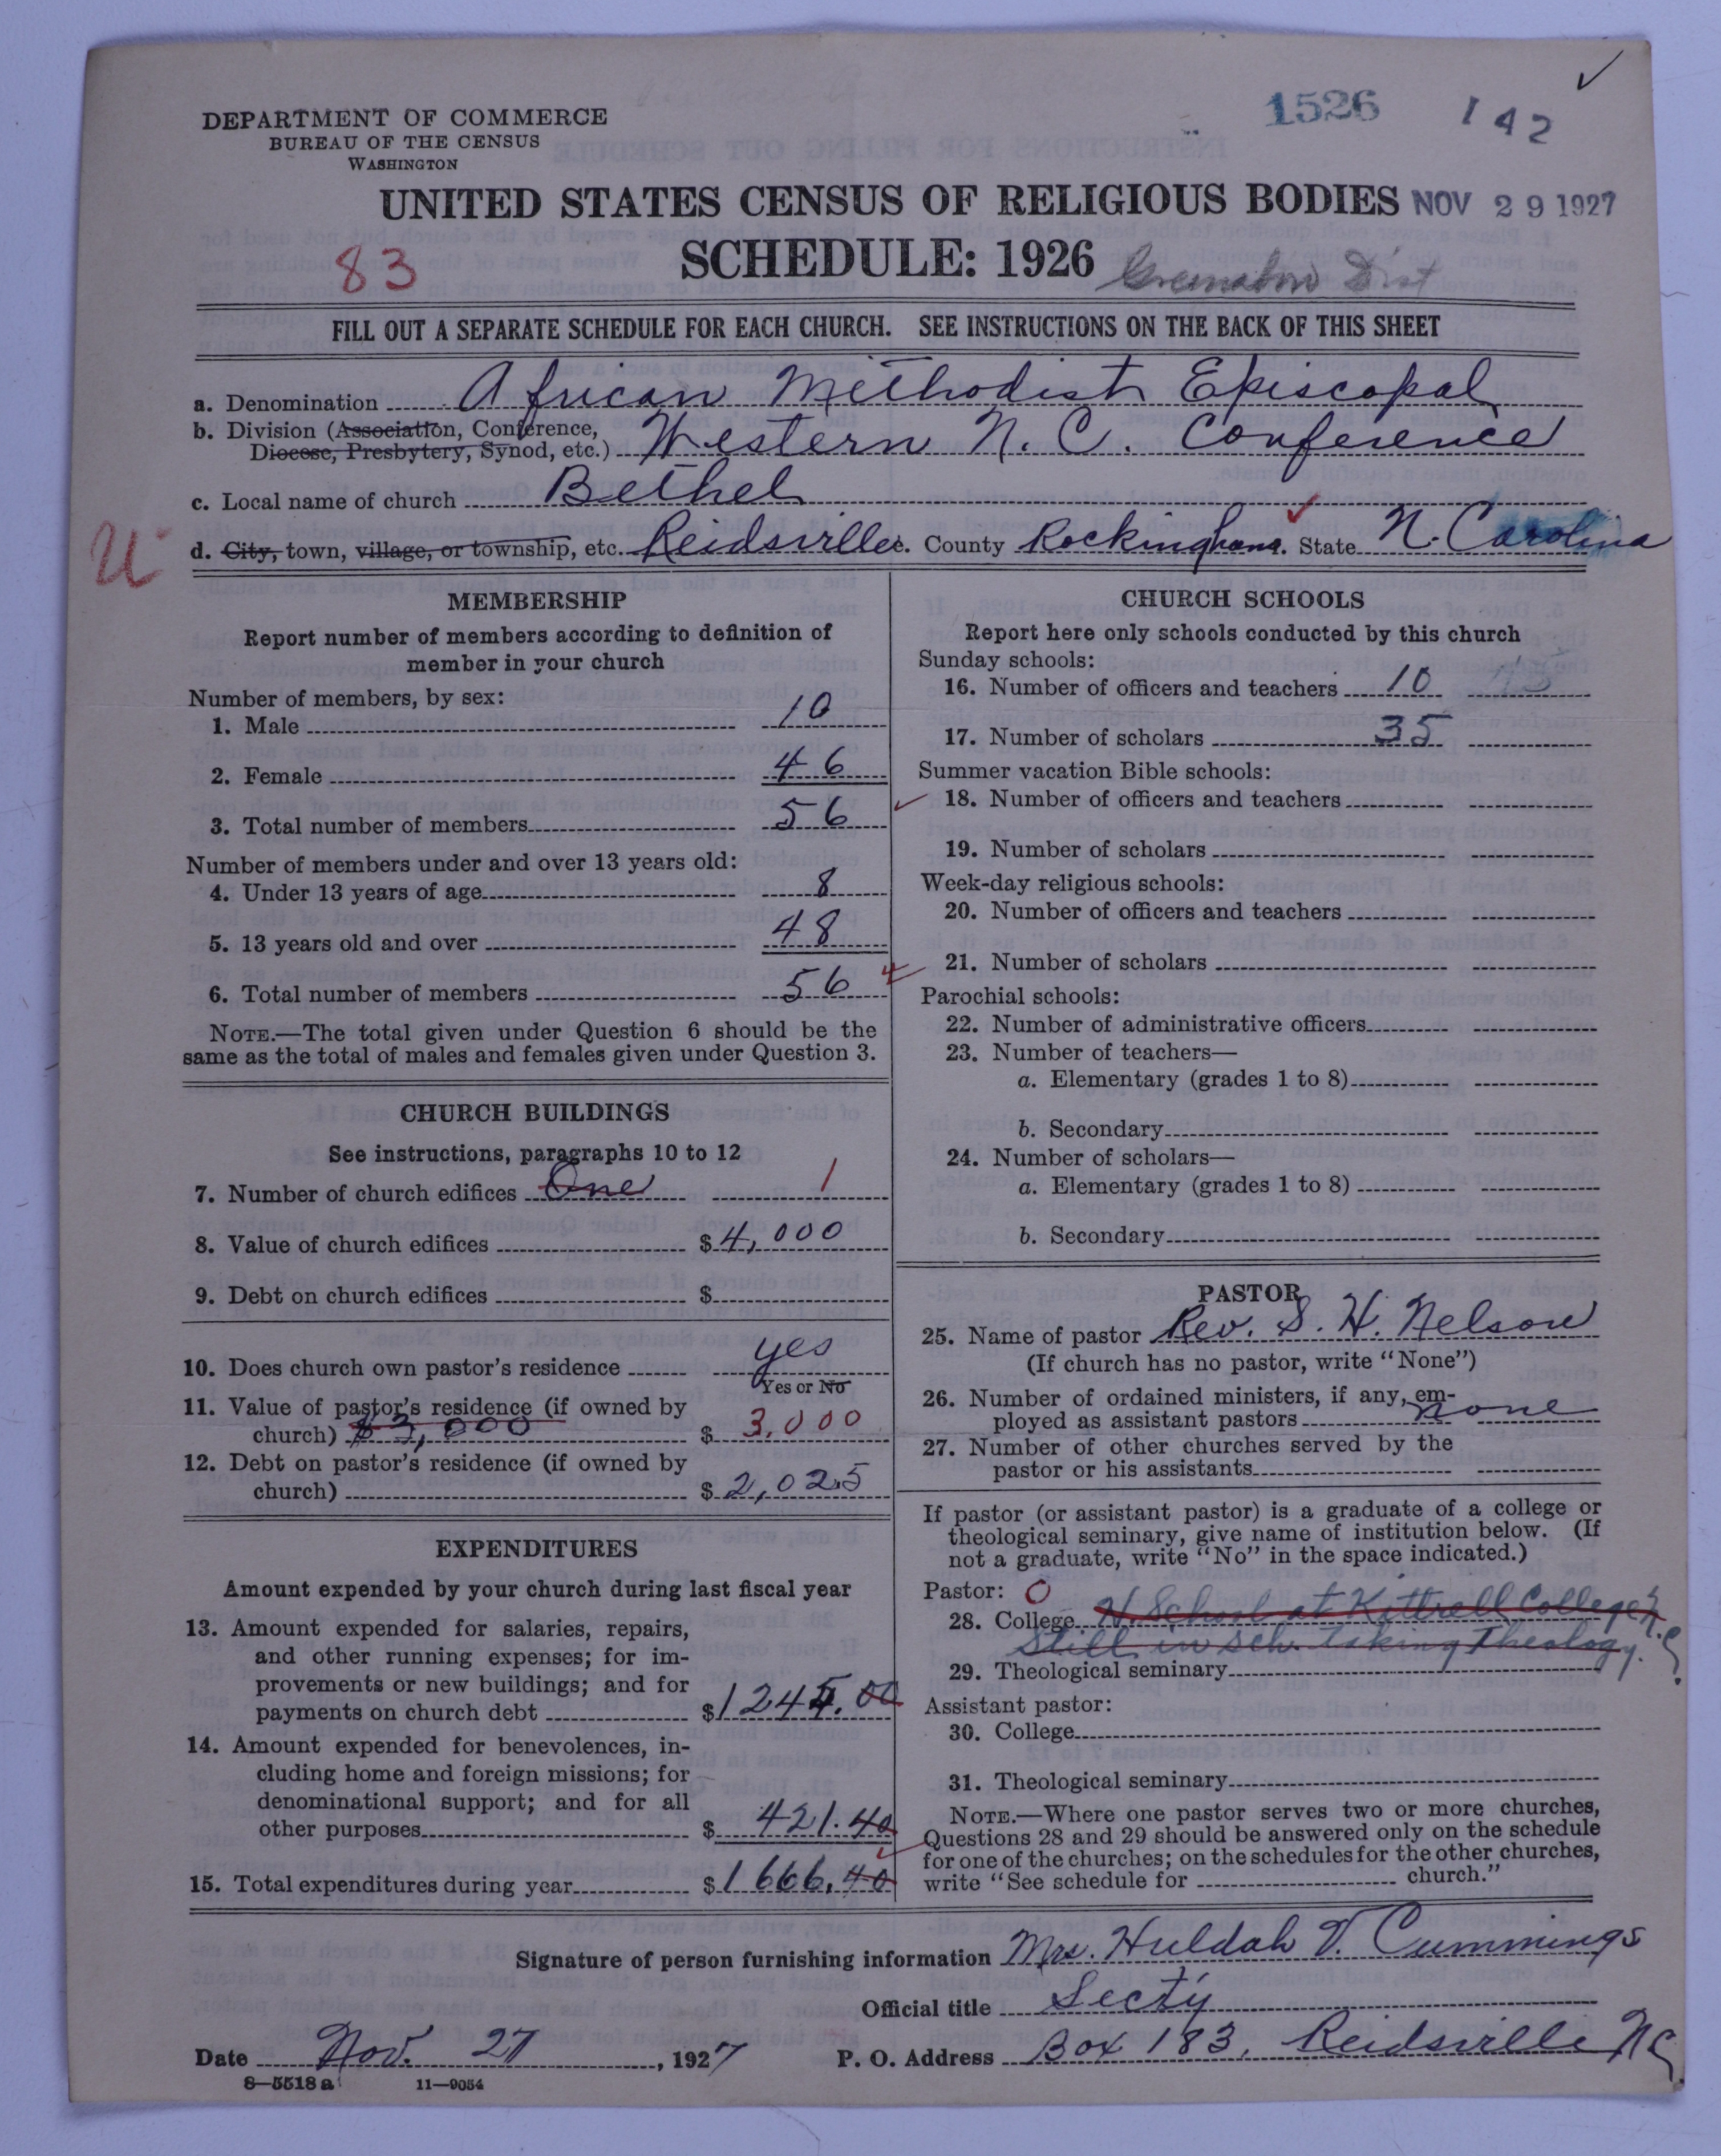 1526 142
DEPARTMENT OF COMMERCE
BUREAU OF THE CENSUS
WASHINGTON
UNITED STATES CENSUS OF RELIGIOUS BODIES NOV 29 1927
83 SCHEDULE: 1926 Greensboro Dist
FILL OUT A SEPARATE SCHEDULE FOR EACH CHURCH. SEE INSTRUCTIONS ON THE BACK OF THIS SHEET
a. Denomination African Methodist Episcopal
b. Division (Association, Conference,
Diocese, Presbytery, Synod, etc.) Western N. C. Conference
c. Local name of church Bethel
U d. City, town, village, or township, etc. Reidsville. County Rockingham. State N. Carolina
MEMBERSHIP
Report number of members according to definition of
member in your church
Number of members, by sex:
1. Male 10
2. Female 46
3. Total number of members 56
Number of members under and over 13 years old:
4. Under 13 years of age 8
5. 13 years old and over 48
6. Total number of members 56
NOTE.—The total given under Question 6 should be the
same as the total of males and females given under Question 3.
CHURCH BUILDINGS
See instructions, paragraphs 10 to 12
7. Number of church edifices One 1
8. Value of church edifices $ 4,000
9. Debt on church edifices $
10. Does church own pastor's residence yes
Yes or No
11. Value of pastor's residence (if owned by
church) $3,000 $ 3,000
12. Debt on pastor's residence (if owned by
church) $ 2,025
EXPENDITURES
Amount expended by your church during last fiscal year
13. Amount expended for salaries, repairs,
and other running expenses; for im-
provements or new buildings; and for
payments on church debt $ 1245.00
14. Amount expended for benevolences, in-
cluding home and foreign missions; for
denominational support; and for all
other purposes $ 421.40
15. Total expenditures during year $ 1666.40
CHURCH SCHOOLS
Report here only schools conducted by this church
Sunday schools:
16. Number of officers and teachers 10
17. Number of scholars 35
Summer vacation Bible schools:
18. Number of officers and teachers
19. Number of scholars
Week-day religious schools:
20. Number of officers and teachers
21. Number of scholars
Parochial schools:
22. Number of administrative officers
23. Number of teachers—
a. Elementary (grades 1 to 8)
b. Secondary
24. Number of scholars—
a. Elementary (grades 1 to 8)
b. Secondary
PASTOR
25. Name of pastor Rev. S. H. Nelson
(If church has no pastor, write "None")
26. Number of ordained ministers, if any, em-
ployed as assistant pastors none
27. Number of other churches served by the
pastor or his assistants
If pastor (or assistant pastor) is a graduate of a college or
theological seminary, give name of institution below. (If
not a graduate, write "No" in the space indicated.)
Pastor: 0
28. College H School at Kittrell College N.C.
Still in sch. taking Theology.
29. Theological seminary
Assistant pastor:
30. College
31. Theological seminary
NOTE.—Where one pastor serves two or more churches,
Questions 28 and 29 should be answered only on the schedule
for one of the churches; on the schedules for the other churches,
write "See schedule for church."
Signature of person furnishing information Mrs. Huldah V. Cummings
Official title Secty
Date Nov. 27, 1927 P. O. Address Box 183, Reidsville N C.
8—5518 a 11—9054